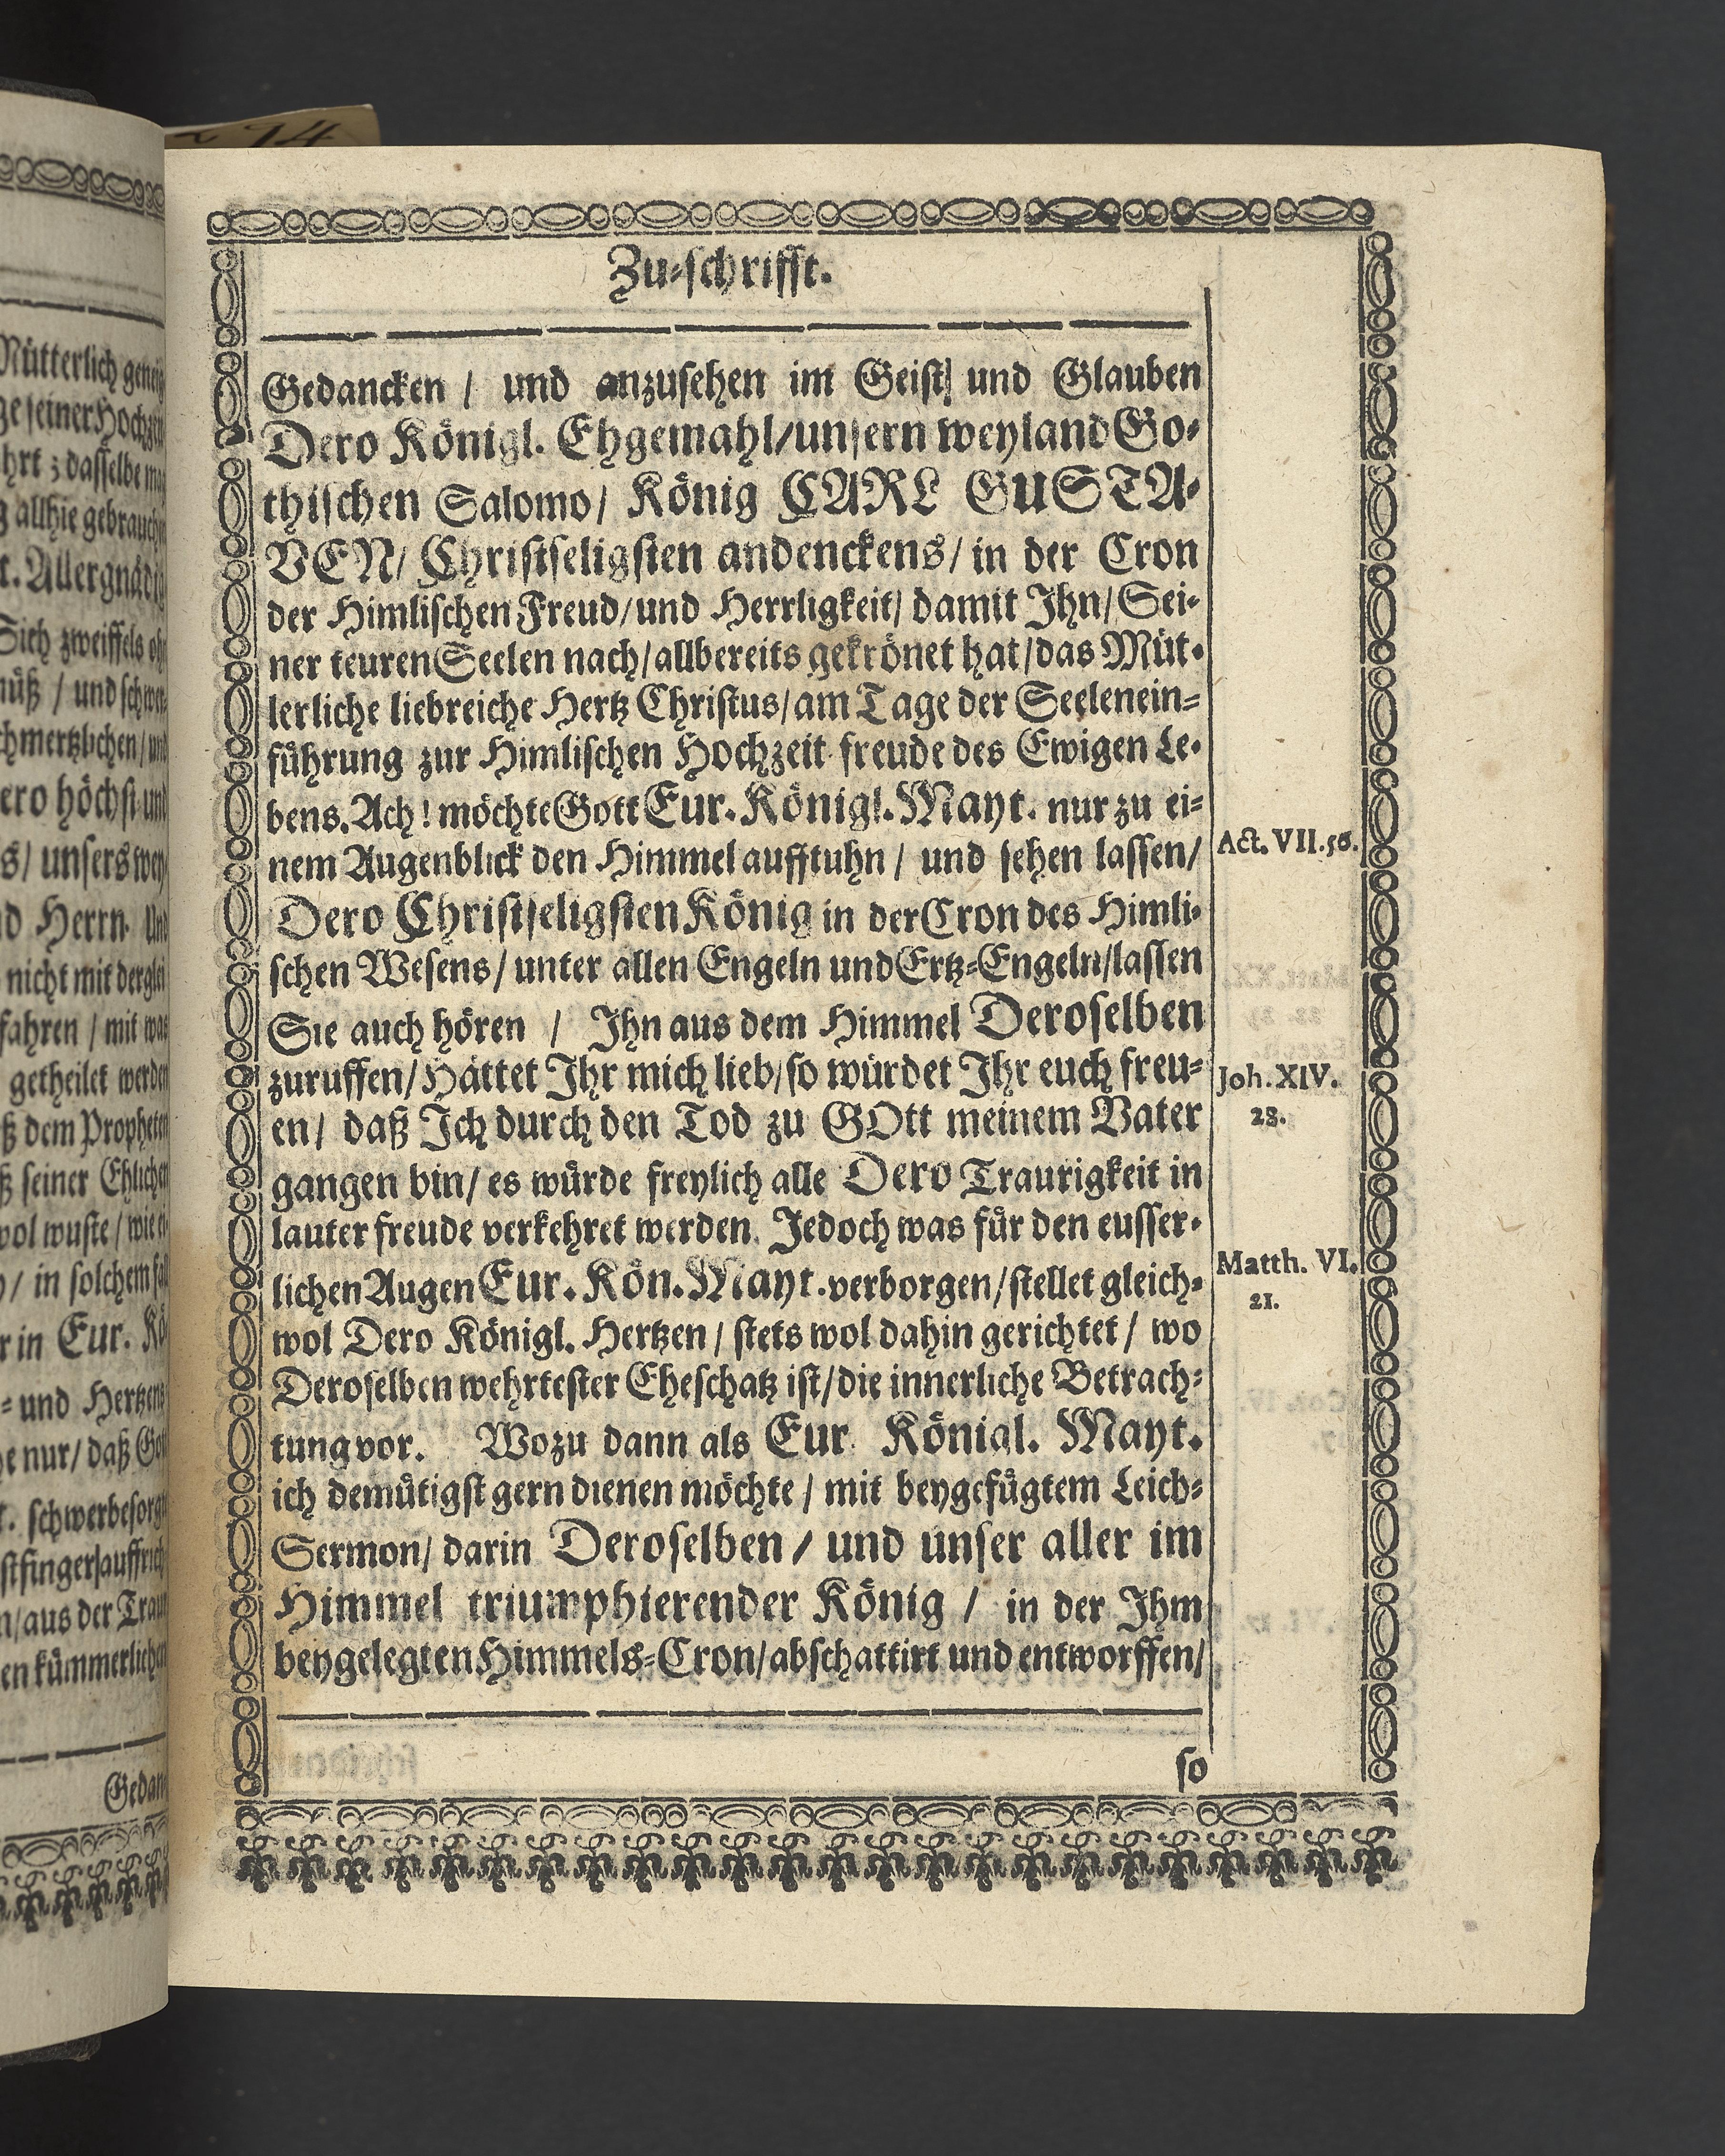 Zu-schrifft.
Gedancken / und anzusehen im Geist/ und Glauben
Dero Königl. Ehgemahl/unsern weyland Go-
thischen Salomo/ König CARL GUSTA-
VEN/ Christseligsten andenckens/ in der Cron
der Himlischen Freud/und Herrligkeit/ damit Ihn/Sei-
ner teuren Seelen nach/allbereits gekrönet hat/das Müt-
lerliche liebreiche Hertz Christus/am Tage der Seelenein-
führung zur Himlischen Hochzeit freude des Ewigen Le-
bens. Ach! möchte Gott Eur. Königl. Mayt. nur zu ei-
nem Augenblick den Himmel aufftuhn / und sehen lassen/
Act. VII.56.
Dero Christseligsten König in der Cron des Himli-
schen Wesens/unter allen Engeln und Ertz-Engeln/lassen
Sie auch hören / Ihn aus dem Himmel Deroselben
zuruffen/Hättet Ihr mich lieb/so würdet Ihr euch freu-
Joh. XIV.
en/ daß Ich durch den Tod zu GOtt meinem Vater
28.
gangen bin/ es würde freylich alle Dero Traurigkeit in
lauter freude verkehret werden. Jedoch was für den eusser-
Matth. VI.
lichen Augen Eur. Kön. Mayt. verborgen/stellet gleich-
21.
wol Dero Königl. Hertzen / stets wol dahin gerichtet / wo
Deroselben wehrtester Eheschatz ist/die innerliche Betrach-
tung vor. Wozu dann als Eur. Königl. Mayt.
ich demütigst gern dienen möchte / mit beygefügtem Leich-
Sermon/ darin Deroselben / und unser aller im
Himmel triumphierender König / in der Ihm
beygelegten Himmels-Cron/abschattirt und entworffen/
so